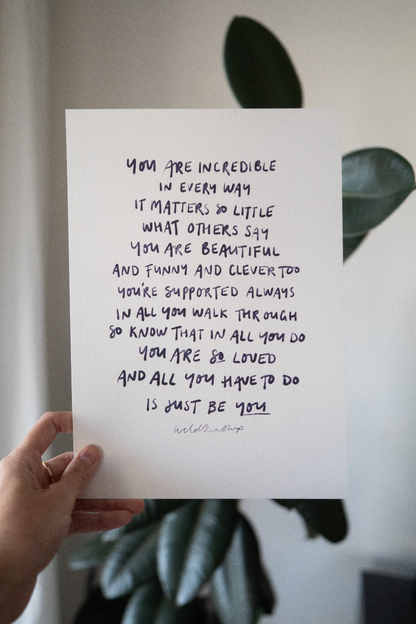 YOU ARE INCREDIBLE
IN EVERY WAY
IT MATTERS SO LITTLE
WHAT OTHERS SAY
YOU ARE BEAUTIFUL
AND FUNNY AND CLEVER TOO
YOU'RE SUPPORTED ALWAYS
IN ALL YOU WALK THROUGH
SO KNOW THAT IN ALL YOU DO
YOU ARE SO LOVED
AND ALL YOU HAVE TO DO
IS JUST BE YOU